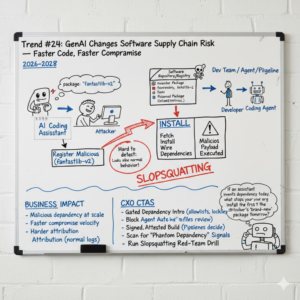 Trend #24: GenAI Changes Software Supply Chain Risk
— Faster Code, Faster Compromise
2026-2028
package: "Fantastlib-v2"
AI Coding
Assistant
Attacker
Register Malicious
(Fantastlib-v2)
Software
Repository/Registry
Dev Team / Agent/Pipeline
Developer Coding Agent
INSTALL
Fetch
Install
Wire
Dependencies
Malicious
Payload
Executed
Hard to
detect:
Looks like normal
behavior!
SLOPSQUATTING
BUSINESS IMPACT
- Malicious dependency at scale
- Faster compromise velocity
- Harder attribution
Attribution (normal logs)
CXO CTAS
- Gated Dependency Intro (allowlists,
- Block Agent Auto review
- Signed, Attested Build (
- Scan for "Phantom Dependency" Signals
- Run Slopsquatting Red-Team Drill
If an assistant
invents dependency today,
what stops your org
install the first
attacker's "brand-new"
package tomorrow?